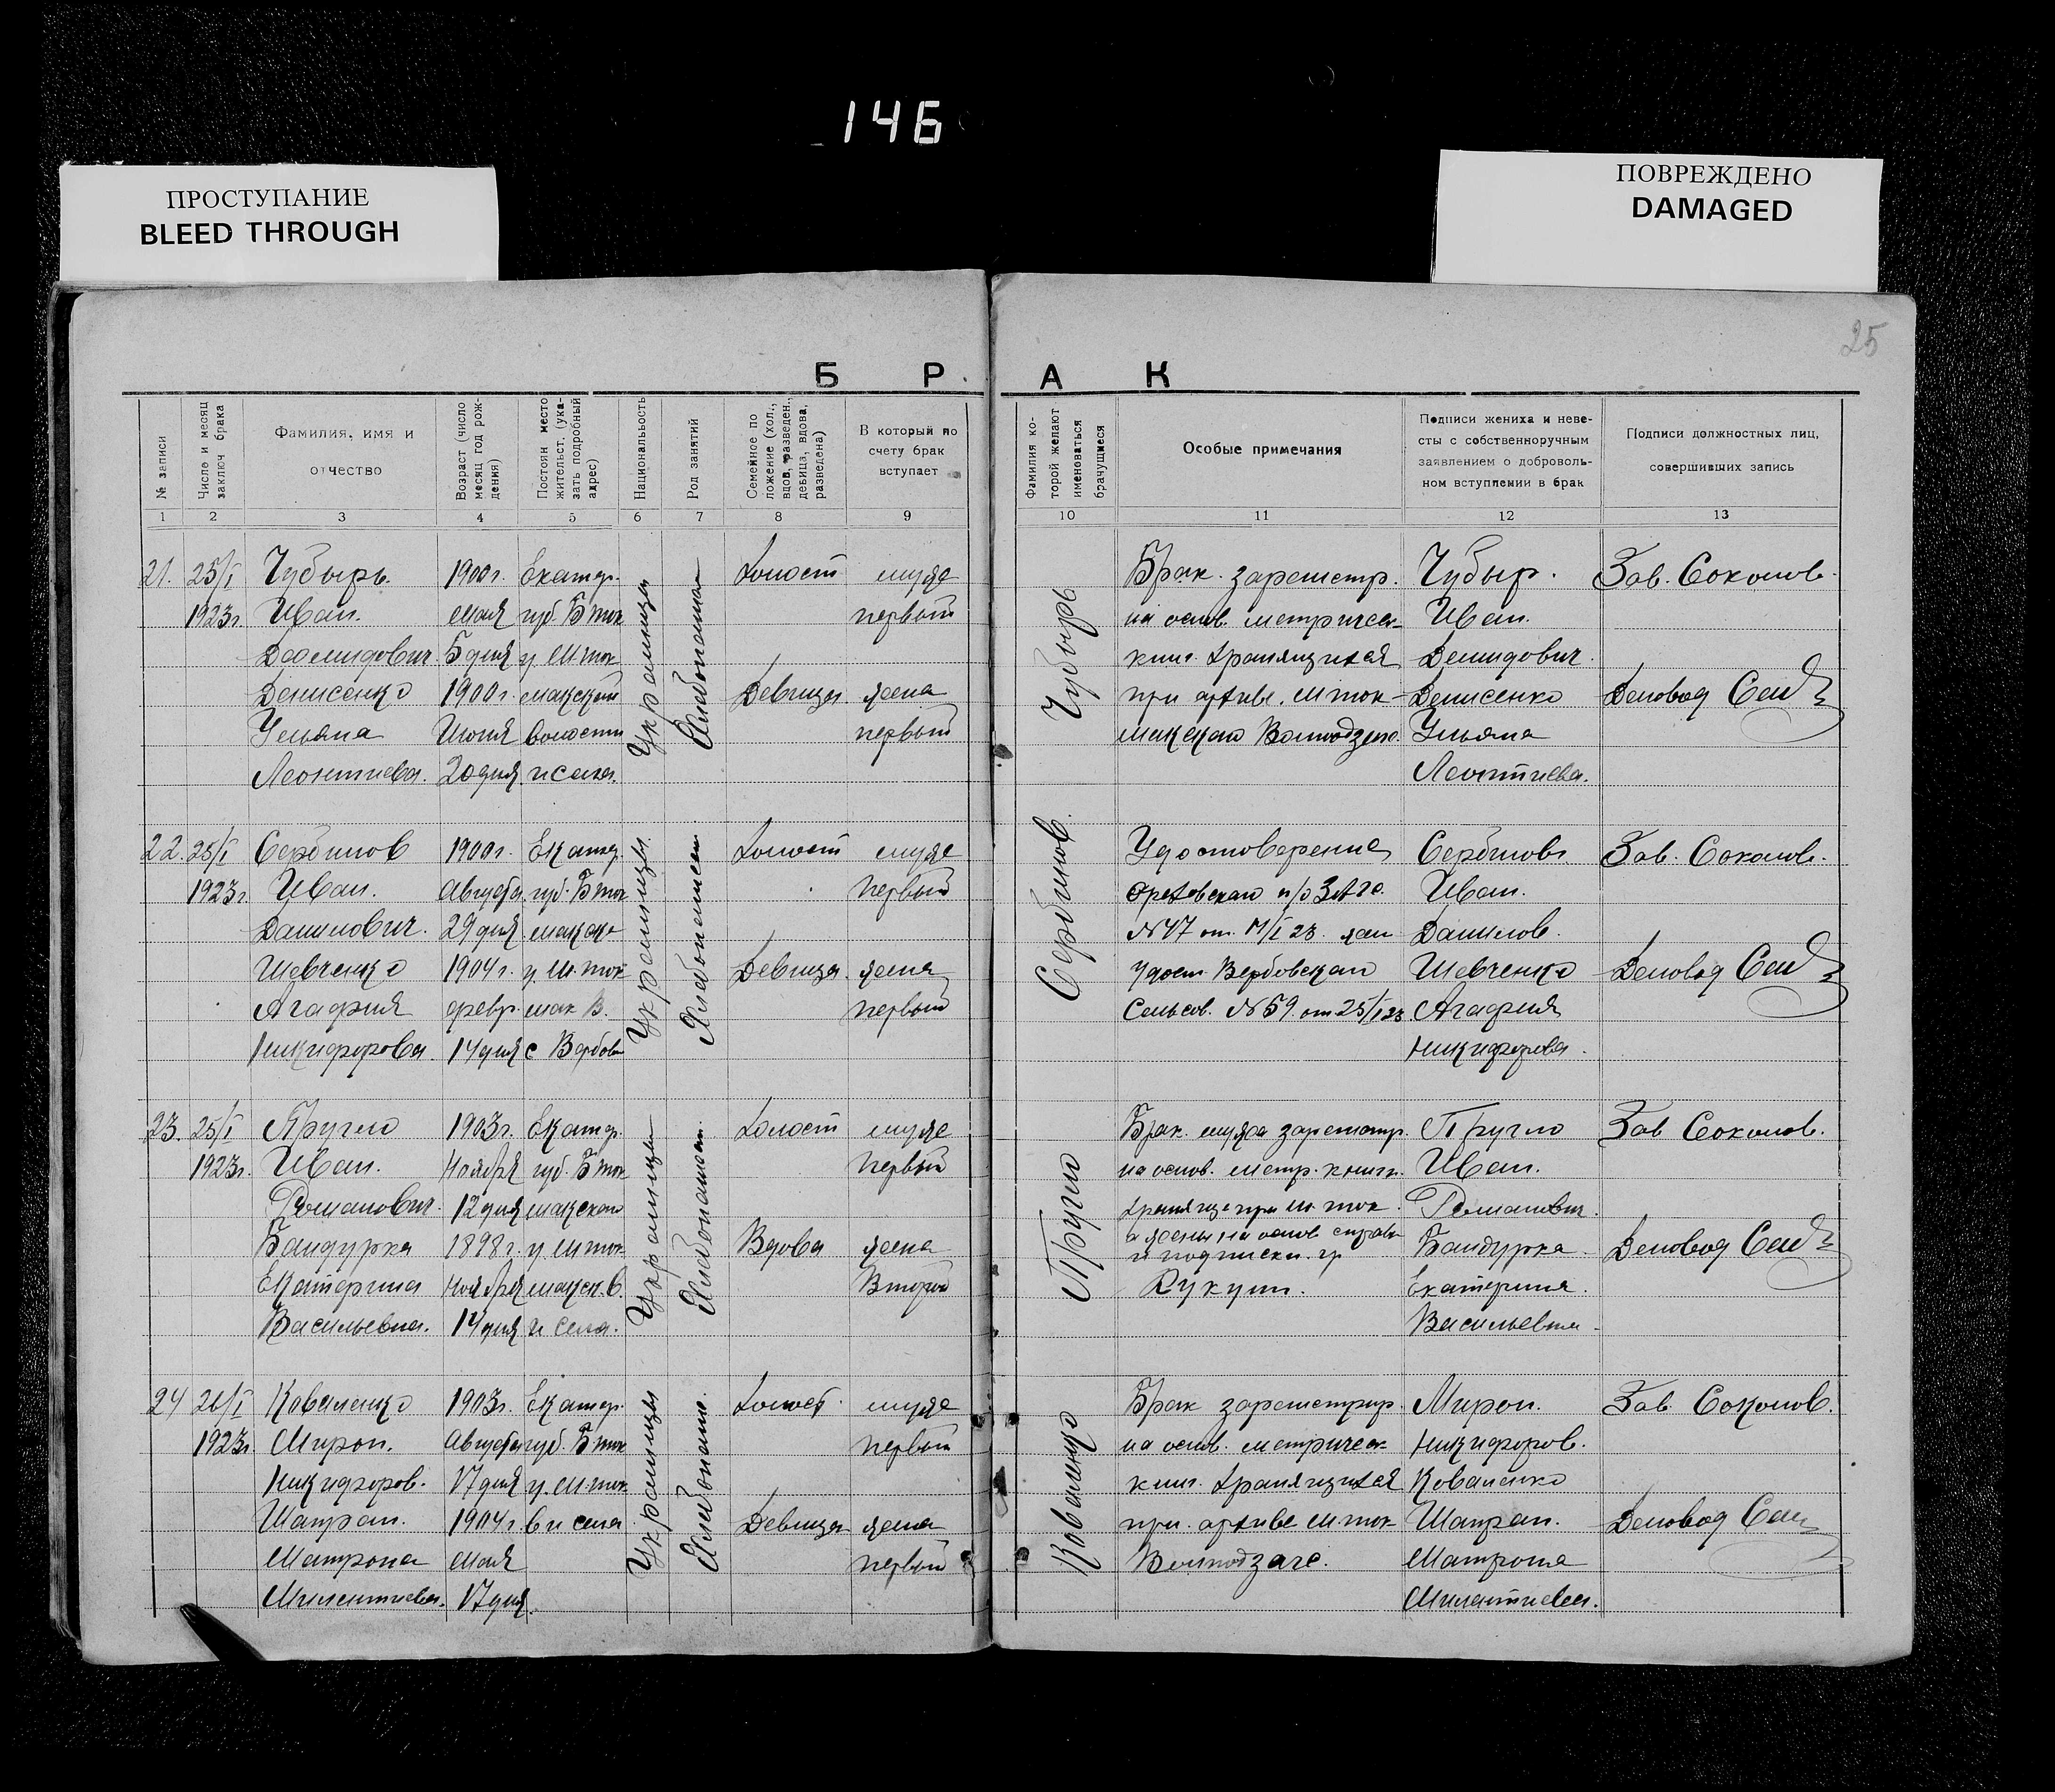 146
ПРОСТУПАНИЕ
BLEED THROUGH
ПОВРЕЖДЕНО
DAMAGED
25
БРАК
№ записи
Число и месяц заключ брака
Фамилия, имя и отчество
Возраст (число месяц год рождения)
Постоян место жительст. (указать подробный адрес)
Национальность
Род занятий
Семейное положение (хол., вдов, разведен., девица, вдова, разведена)
В который по счету брак вступает
Фамилия которой желают именоваться брачущиеся
Особые примечания
Подписи жениха и невесты с собственноручным заявлением о добровольном вступлении в брак
Подписи должностных лиц, совершивших запись
1 2 3 4 5 6 7 8 9 10 11 12 13
21. 25/I Чубырь 1900г. Екатер. Холост муже Брак. зарегистр. Чубыр. Зав. Соколов.
1923г. Иван. мая губ. Б ток первый на основ. метрическ Иван.
5 дня у. М. ток книг. хранящихся Демидович.
Денисенко 1900г. Девица жена при архиве. М ток Денисенко Деловод
Ульяна Июня волости первый Ульяна
Леонтиева. 20 дня и села. Леонтиева.
Украинцы
Чубырь
22. 25/I Сербинов 1900г. Екатер. Холост муже Удостоверение Сербинов Зав. Соколов.
1923г. Иван. Августа губ. Б ток первый Ореховская п/о Загс. Иван.
Данилович. 29 дня №47 Данилов.
Шевченко 1904г. у. М. ток Девица. жена Удост Вербовская Шевченко Деловод
Агафия февр. мак В. первый Сельсов. №59 от 25/I 23 Агафия
Никифорова. 14 дня с Вербов Никифорова.
Украинцы.
Сербинов.
23. 25/I Пругло 1903г. Екатер. Холост муже Брак. мужа зарегистр. Пругло Зав Соколов.
1923г. Иван. Ноября губ. Б ток первый на основ. метр. книги. Иван.
Романович. 12 дня хранящ при М. ток Романович.
Бандурка 1898г. у. М ток Вдова жена а жены на основ справк Бандурка Деловод
и подписки. гр
Екатерина Ноября второй Екатерина.
Васильевна. 14 дня и села. Васильевна
Украинцы
Пругло
24 26/I Коваленко 1903г. Екатер. Холост. муже Брак зарегистрир. Мирон. Зав. Соколов.
1923г. Мирон. Августа губ. Б ток первый на основ. метрическ Никифоров.
Никифоров. 17 дня у. М. ток книг. хранящихся Коваленко
Шапран. 1904г. в и села Девица жена при. архиве М ток Шапран. Деловод
Матрона мая первый Матрона
Милентиева. 17 дня. Милентиева.
Украинцы
Коваленко